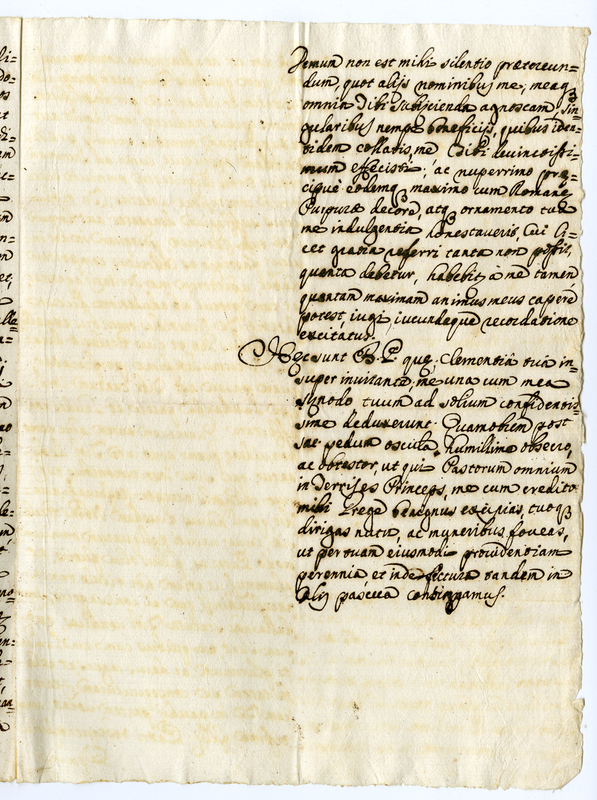 Demum non est mihi silentio prætereun=
dum, quot alijs nominibus me, meaq;
omnia Tibi subijcienda agnoscam, Sin=
gularibus nempè beneficijs, quibus iden=
tidem collatis, me Tibi devinctissi=
mum effecisti; ac nuperrimo præ=
cipuè eodemq; maximo cum Romanæ
Purpuræ decore, atq; ornamento tua
me indulgentia honestaveris, cui li=
cet gratia referri tanta non possit,
quanta debetur, habebit à me tamen
quantam maximam animus meus capere
potest, iugi, iucundaque recordatione
excitatus.
Hæc sunt B. P. quę, Clementiâ tuâ in=
super invitante, me una cum mea
synodo tuum ad solium confidentis=
sime deduxerunt. Quamobrem post
sac. pedum oscula humillime obsecro,
ac obtestor, ut qui Pastorum omnium
in Terris es Princeps, me cum credito
mihi Grege benignus excipias, tuoq;
dirigas nutu, ac muneribus foveas,
ut per tuam eiusmodi providentiam
perennia et indefectura tandem in
Cęlis pascua contingamus.